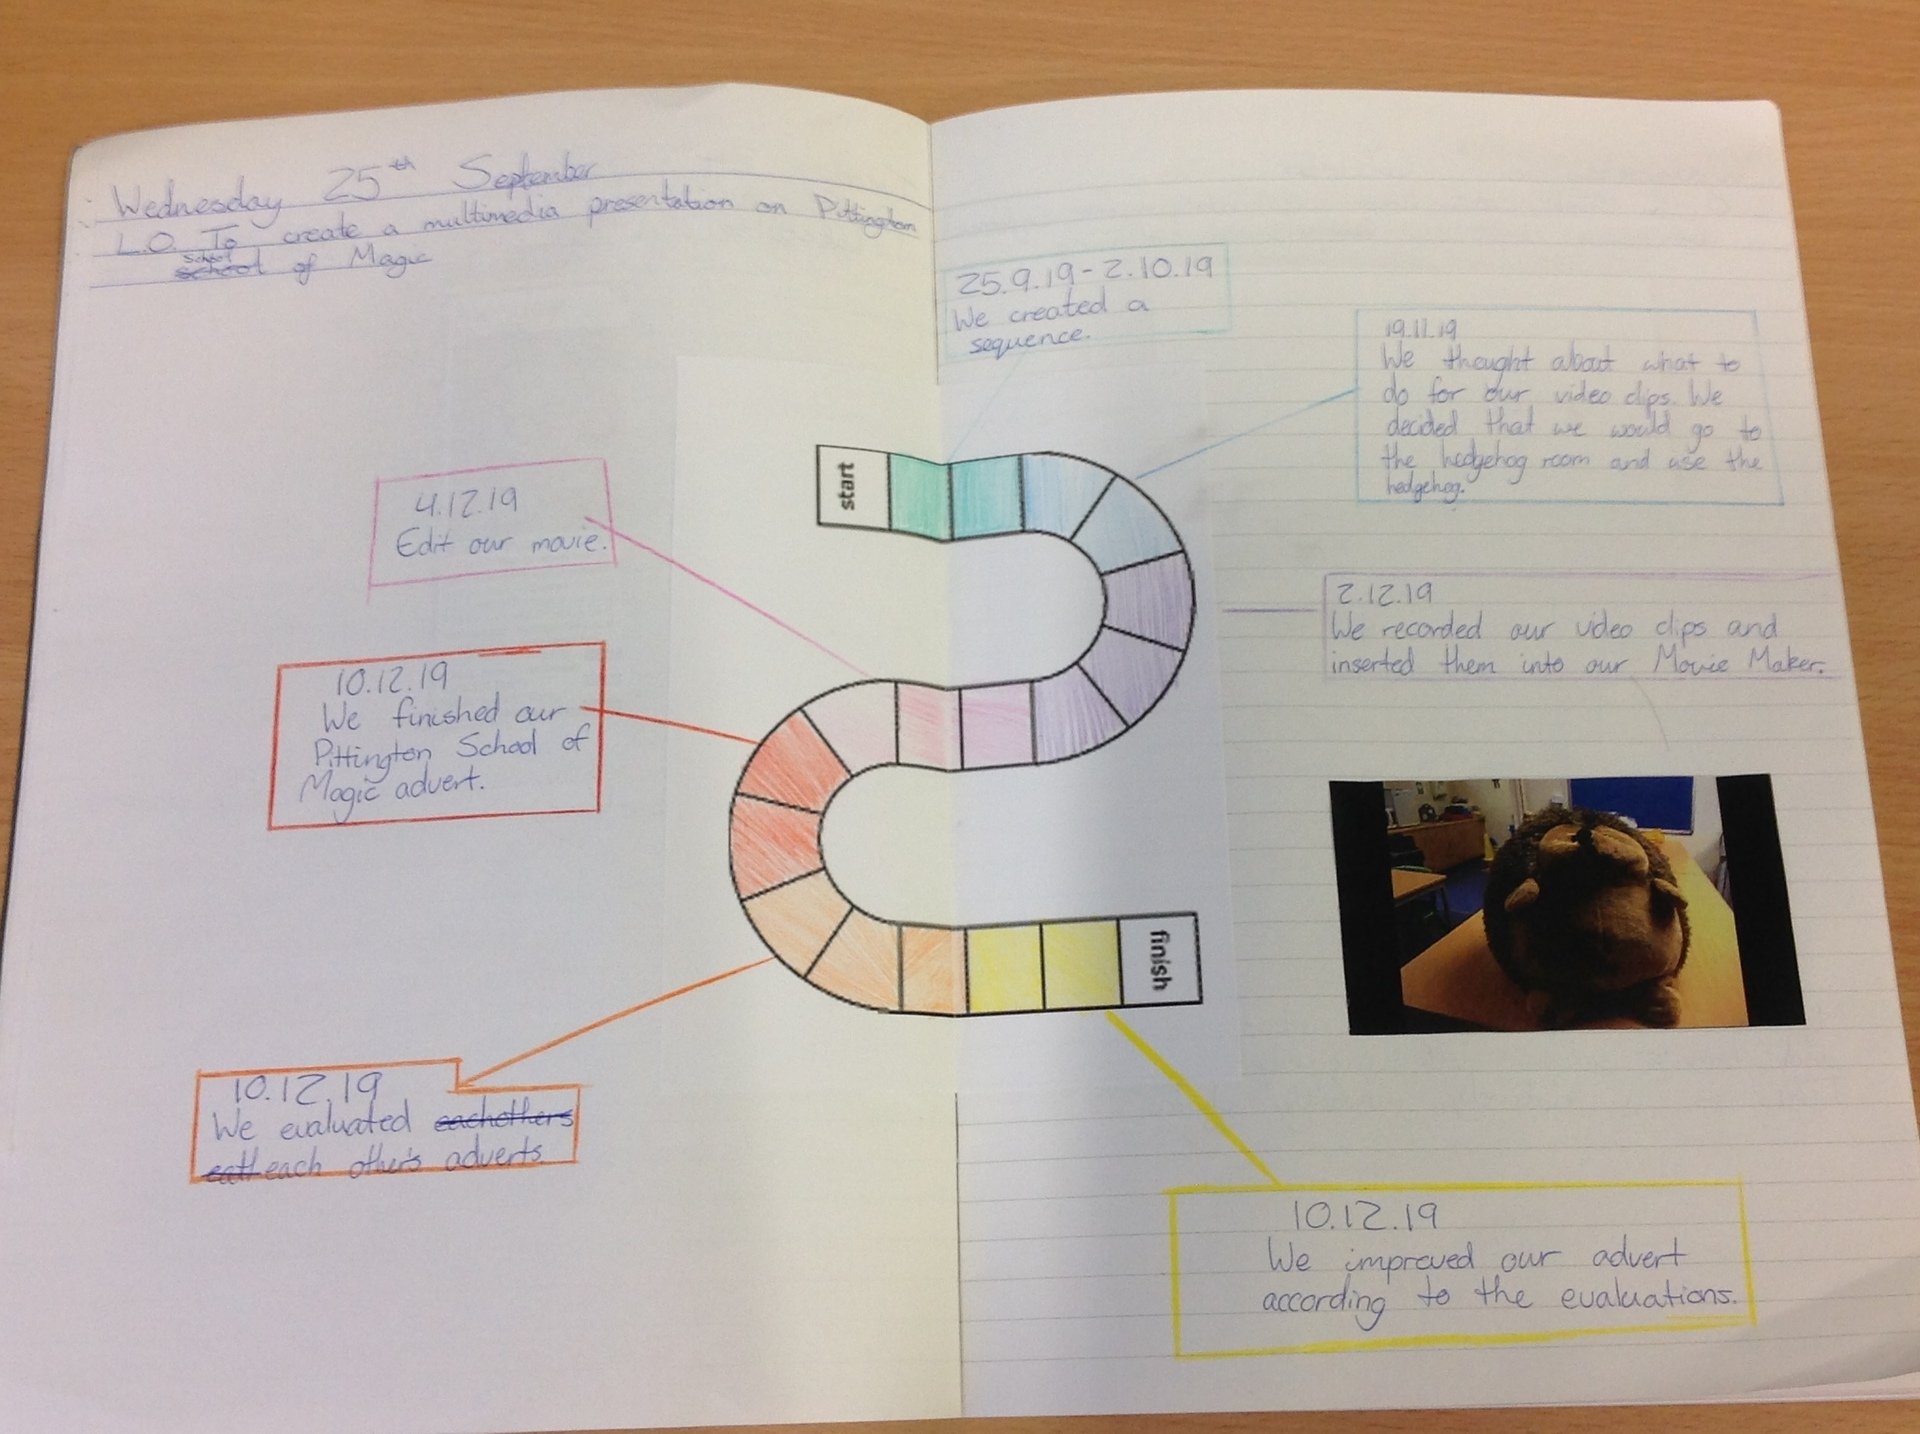 Wednesday 25th September
L.O. To create a multimedia presentation on Pittington
school
school of Magic
25.9.19 - 2.10.19
We created a
sequence.
19.11.19
We thought about what to
do for our video clips. We
decided that we would go to
the hedgehog room and use the
hedgehog.
start
4.12.19
Edit our movie.
2.12.19
We recorded our video clips and
inserted them into our Movie Maker.
10.12.19
We finished our
Pittington School of
Magic advert.
finish
10.12.19
We evaluated eachothers
each other's adverts
10.12.19
We improved our advert
according to the evaluations.